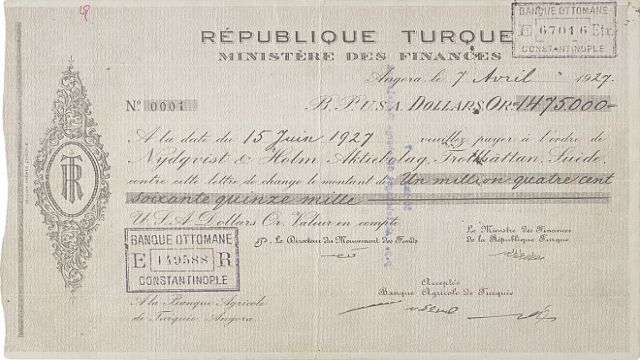 RÉPUBLIQUE TURQUE
MINISTÈRE DES FINANCES
BANQUE OTTOMANE
E 67016 Etr.
CONSTANTINOPLE
Angora, le 7 Avril 1927.
No 0001
B. P. U.S.A. DOLLARS OR 1475.000
A la date du 15 Juin 1927 veuillez payer à l'ordre de
Nydqvist & Holm Aktiebolag, Trollhättan, Suède,
contre cette lettre de change le montant de Un million quatre cent
soixante quinze mille
U.S.A Dollars Or. Valeur en compte
BANQUE OTTOMANE
E 149588 R
CONSTANTINOPLE
Le Directeur du Mouvement des Fonds
Le Ministre des Finances
de la République Turque
TR
A la Banque Agricole
de Turquie, Angora.
Acceptée
Banque Agricole de Turquie